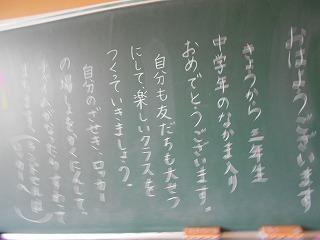 おはようございます
きょうから 三年生
中学年のなかま入り
おめでとうございます。
自分も友だちも大せつ
にして楽しいクラスを
つくっていきましょう。
自分のざせき、ロッカー
の場しょをかくにんして、
すわって